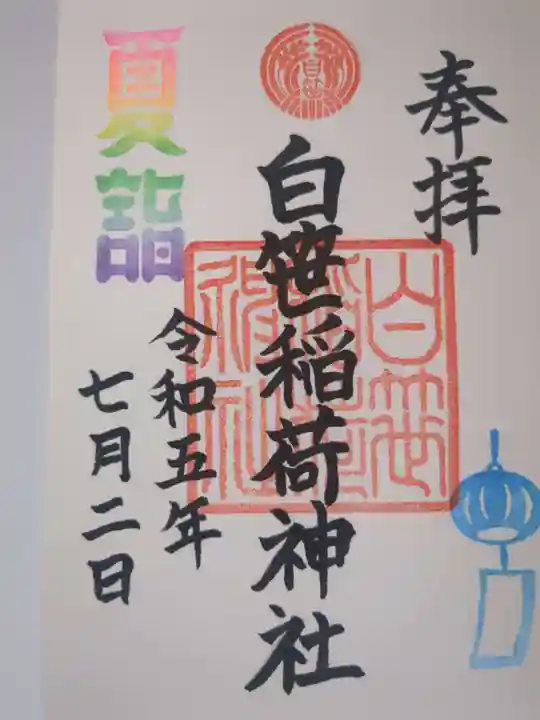 奉拝
白笹
白笹稲荷神社
白笹稲荷神社
夏詣
令和五年
七月二日